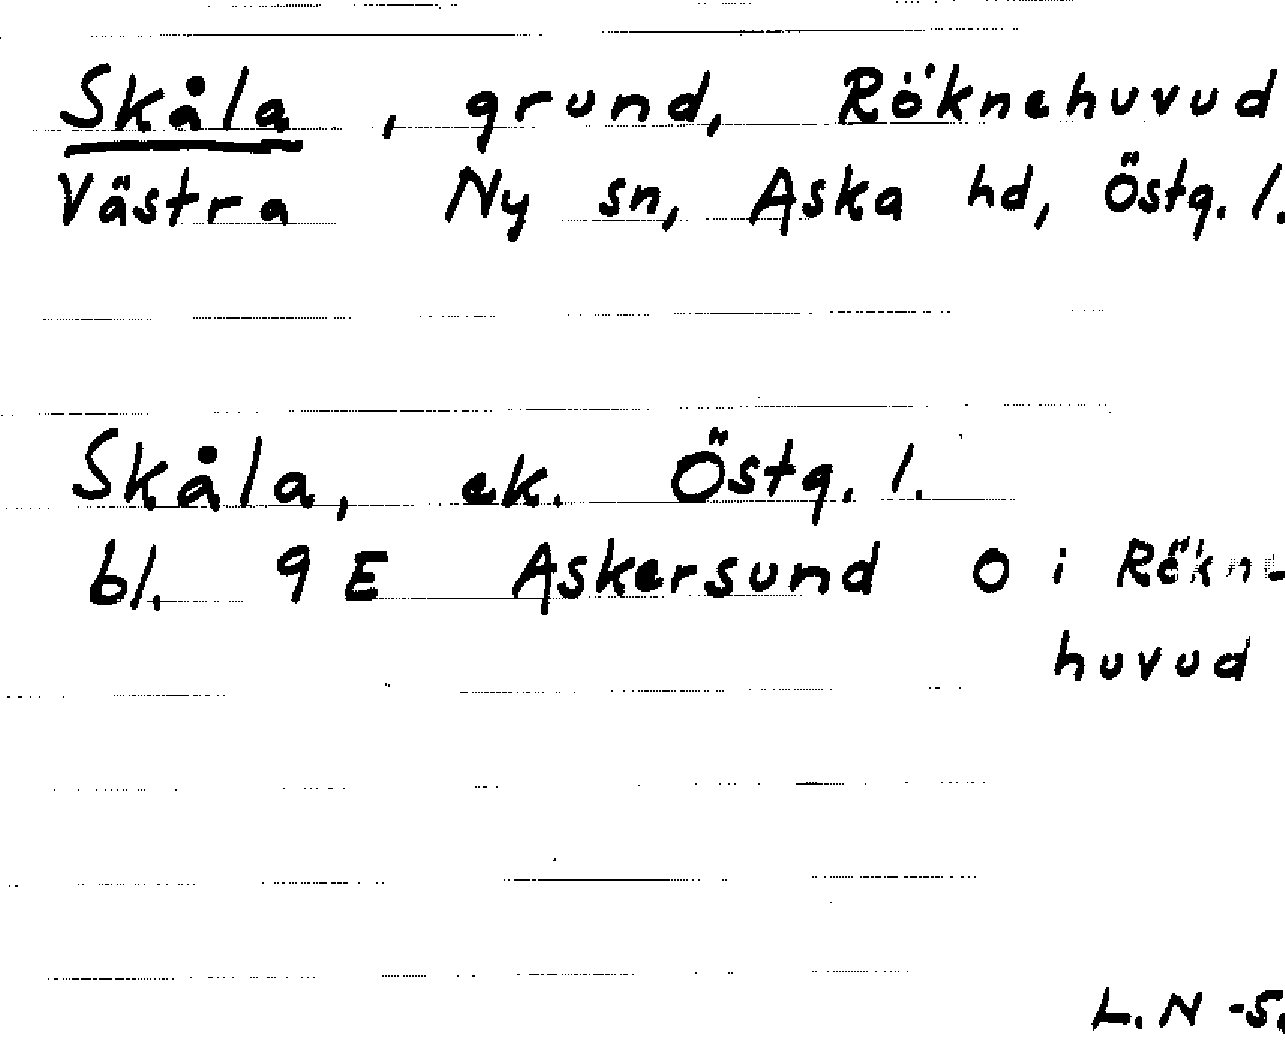 Skåla , grund, Röknehuvud
Västra Ny sn, Aska hd, Östg. l.
Skåla, ek. Östg. l.
bl. 9 E Askersund O i Rökne-
huvud
L. N -S.